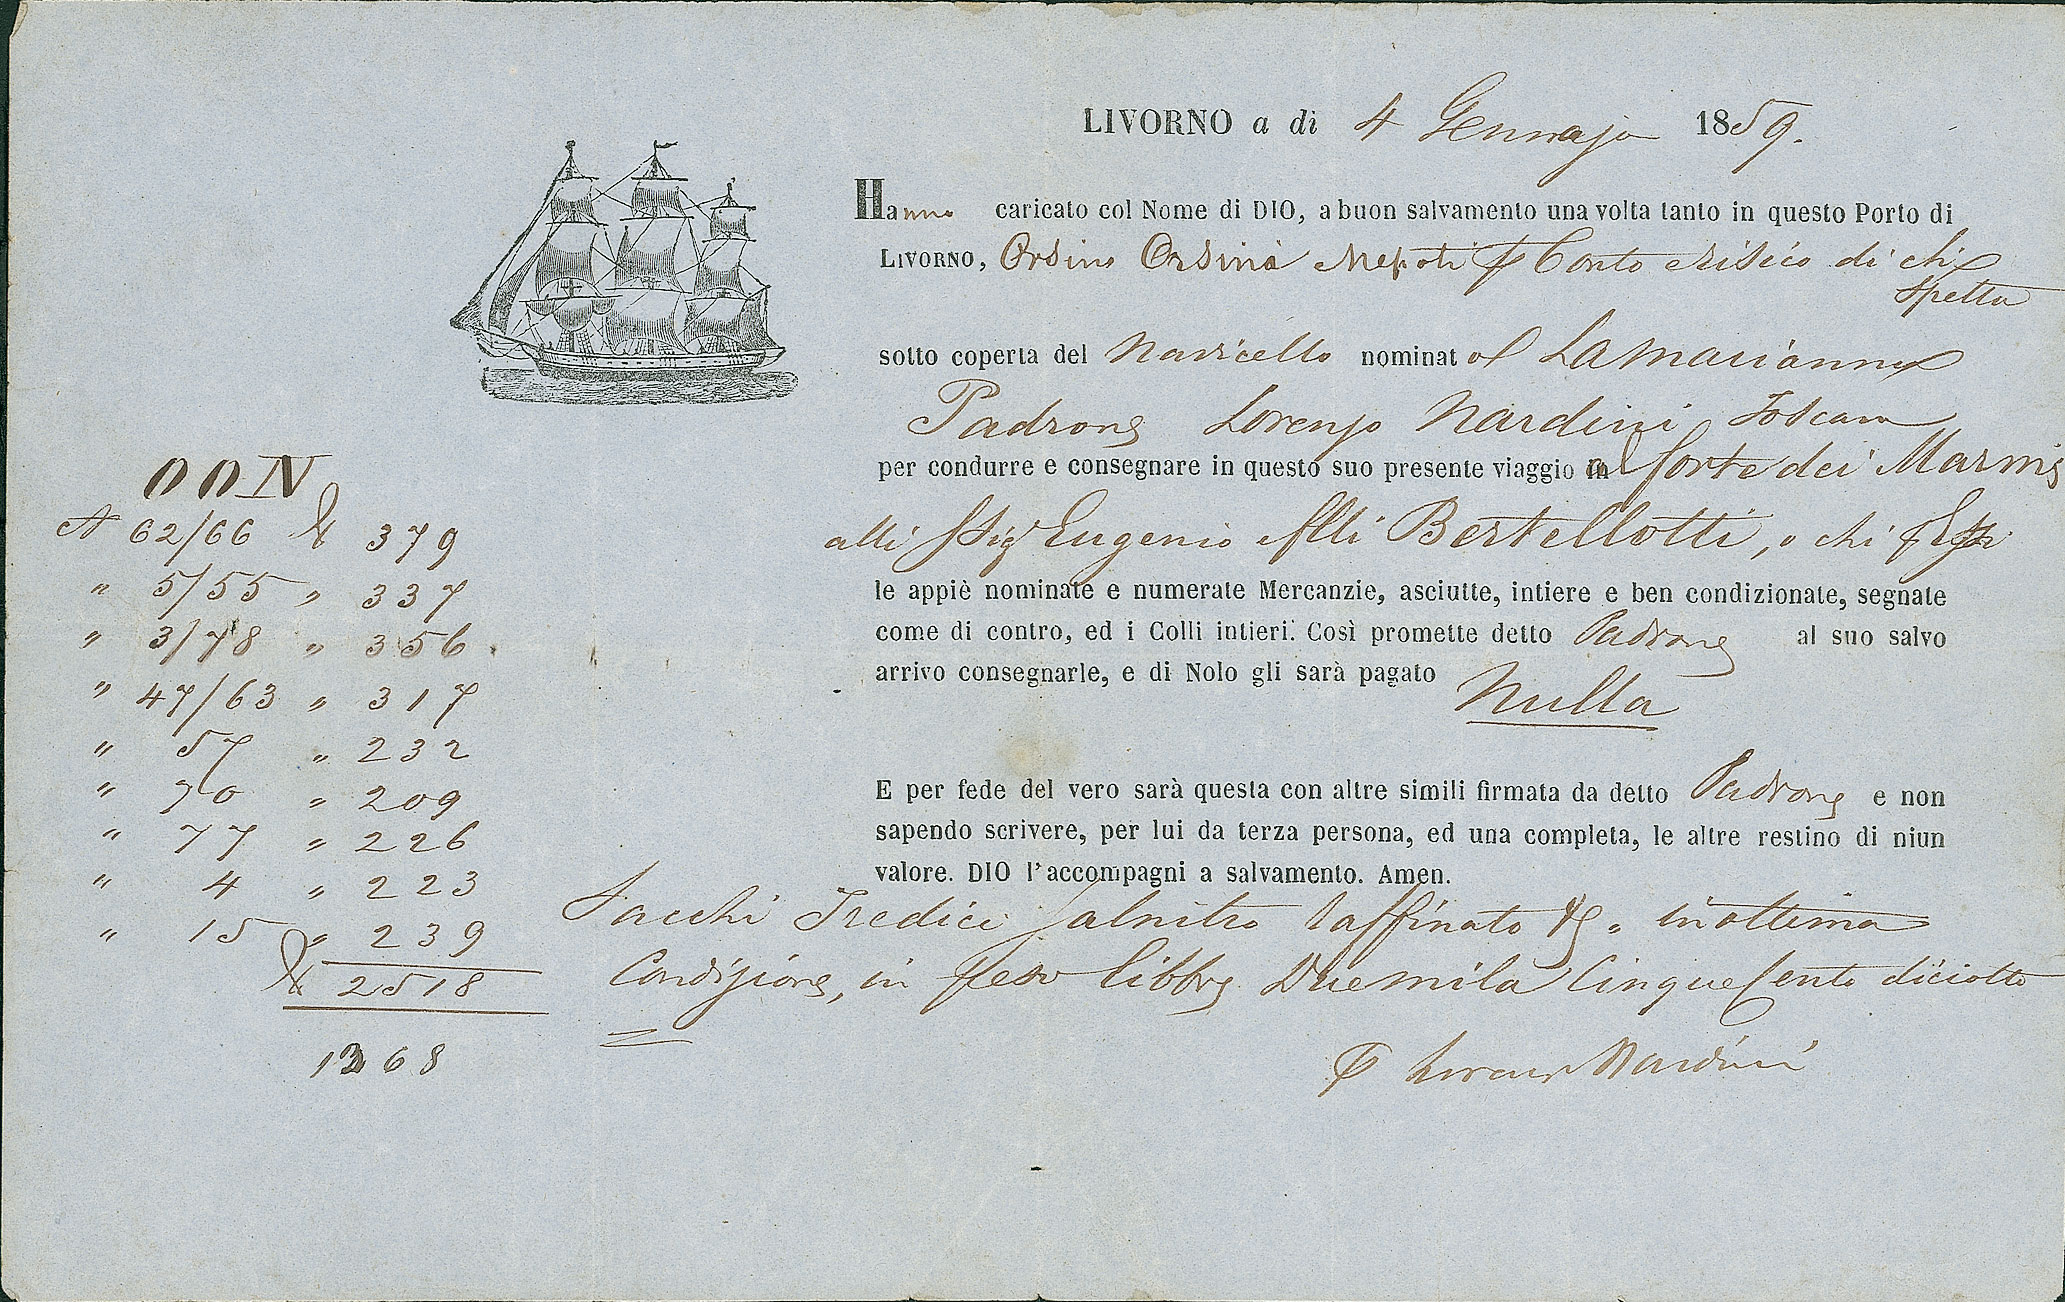 LIVORNO a dì 4 Gennajo 1859.
Hanno caricato col Nome di DIO, a buon salvamento una volta tanto in questo Porto di
LIVORNO, Orsino Orsini Nepoti Conto e risico di chi
spetta
sotto coperta del Navicello nominato La Marianna
Padrone Lorenzo Nardini Toscano
per condurre e consegnare in questo suo presente viaggio in forte dei Marmi
alli Sig Eugenio flli Bertellotti, o chi
le appiè nominate e numerate Mercanzie, asciutte, intiere e ben condizionate, segnate
come di contro, ed i Colli intieri. Così promette detto Padrone al suo salvo
arrivo consegnarle, e di Nolo gli sarà pagato Nulla
E per fede del vero sarà questa con altre simili firmata da detto Padrone e non
sapendo scrivere, per lui da terza persona, ed una completa, le altre restino di niun
valore. DIO l'accompagni a salvamento. Amen.
Sacchi Tredici Salnitro Raffinato in ottima
Condizione, in peso libbre Duemila Cinque Cento diciotto
Lorenzo Nardini
OON
N 62/66 379
" 5/55 " 337
" 3/78 " 356
" 47/63 " 317
" 57 " 232
" 70 " 209
" 77 " 226
" 4 " 223
" 15 " 239
2518
1368